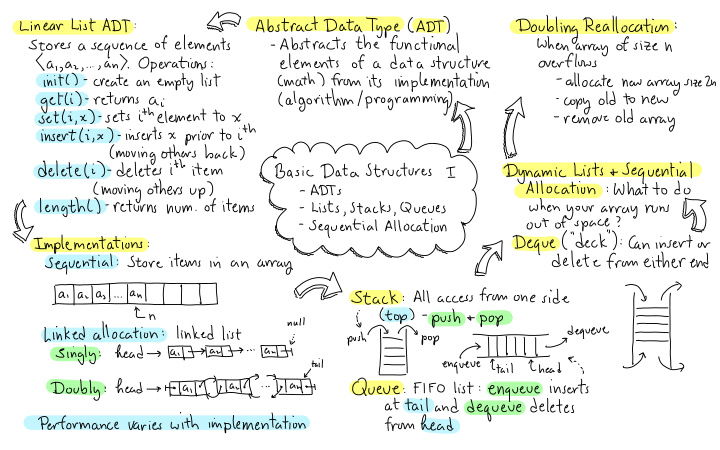 Basic Data Structures I
- ADTs
- Lists, Stacks, Queues
- Sequential Allocation
Abstract Data Type (ADT)
- Abstracts the functional
elements of a data structure
(math) from its implementation
(algorithm/programming)
Linear List ADT:
Stores a sequence of elements
⟨a₁, a₂, ..., aₙ⟩. Operations:
init() - create an empty list
get(i) - returns aᵢ
set(i,x) - sets iᵗʰ element to x
insert(i,x) - inserts x prior to iᵗʰ
(moving others back)
delete(i) - deletes iᵗʰ item
(moving others up)
length() - returns num. of items
Implementations:
Sequential: Store items in an array
a₁ a₂ a₃ ... aₙ
n
Linked allocation: linked list
null
Singly: head → a₁ a₂ ... aₙ
tail
Doubly: head → a₁ a₂ ... aₙ
Performance varies with implementation
Stack: All access from one side
(top) - push + pop
push
pop
dequeue
enqueue
tail
head
Queue: FIFO list: enqueue inserts
at tail and dequeue deletes
from head
Deque ("deck"): Can insert or
delete from either end
Dynamic Lists + Sequential
Allocation: What to do
when your array runs
out of space?
Doubling Reallocation:
When array of size n
overflows
- allocate new array size 2n
- copy old to new
- remove old array